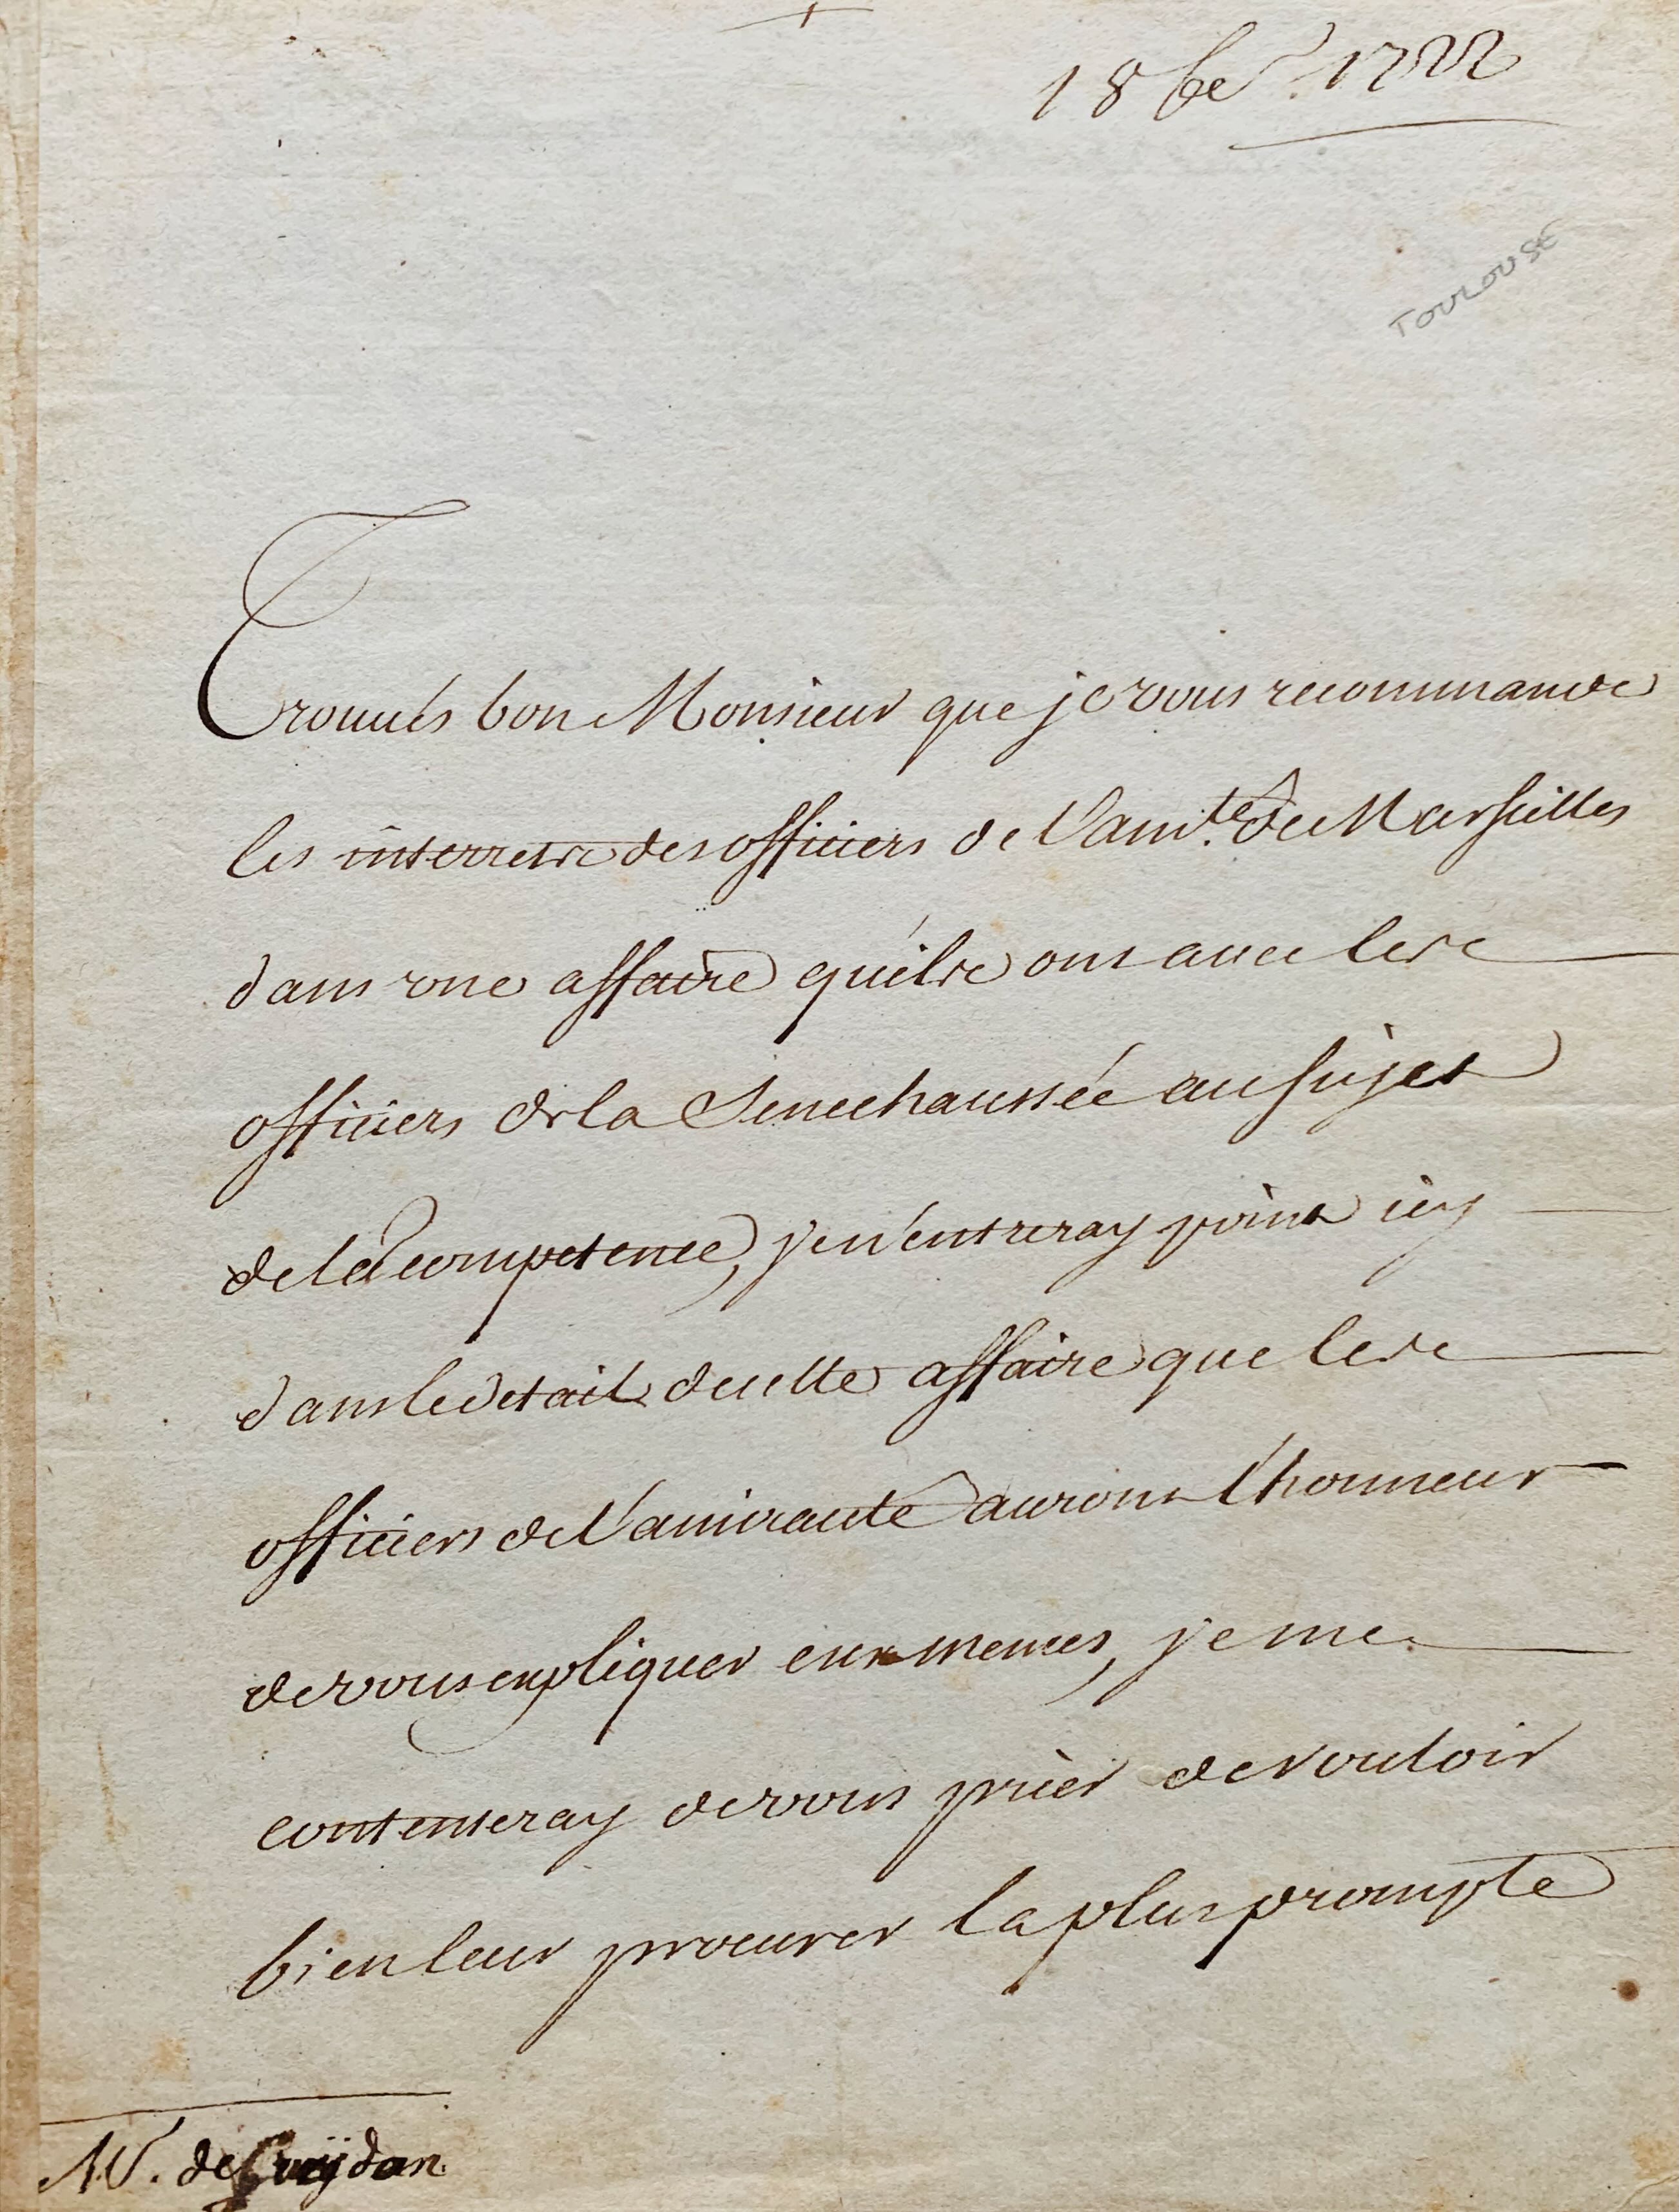 18 fer. 1722
Toulouse
Trouués bon Monsieur que je vous recommande
les interrests des officiers de l'am.té de Marseilles
dans une affaire qu'ils ont auec les
officiers de la Senechaussée au sujet
de la competence, je n'entreray point icy
dans le detail de cette affaire que les
officiers de l'amirauté auront l'honneur
de vous expliquer eux memes, je me
contenteray de vous prier de vouloir
bien leur procurer la plus prompte
Mr. de Gueÿdan